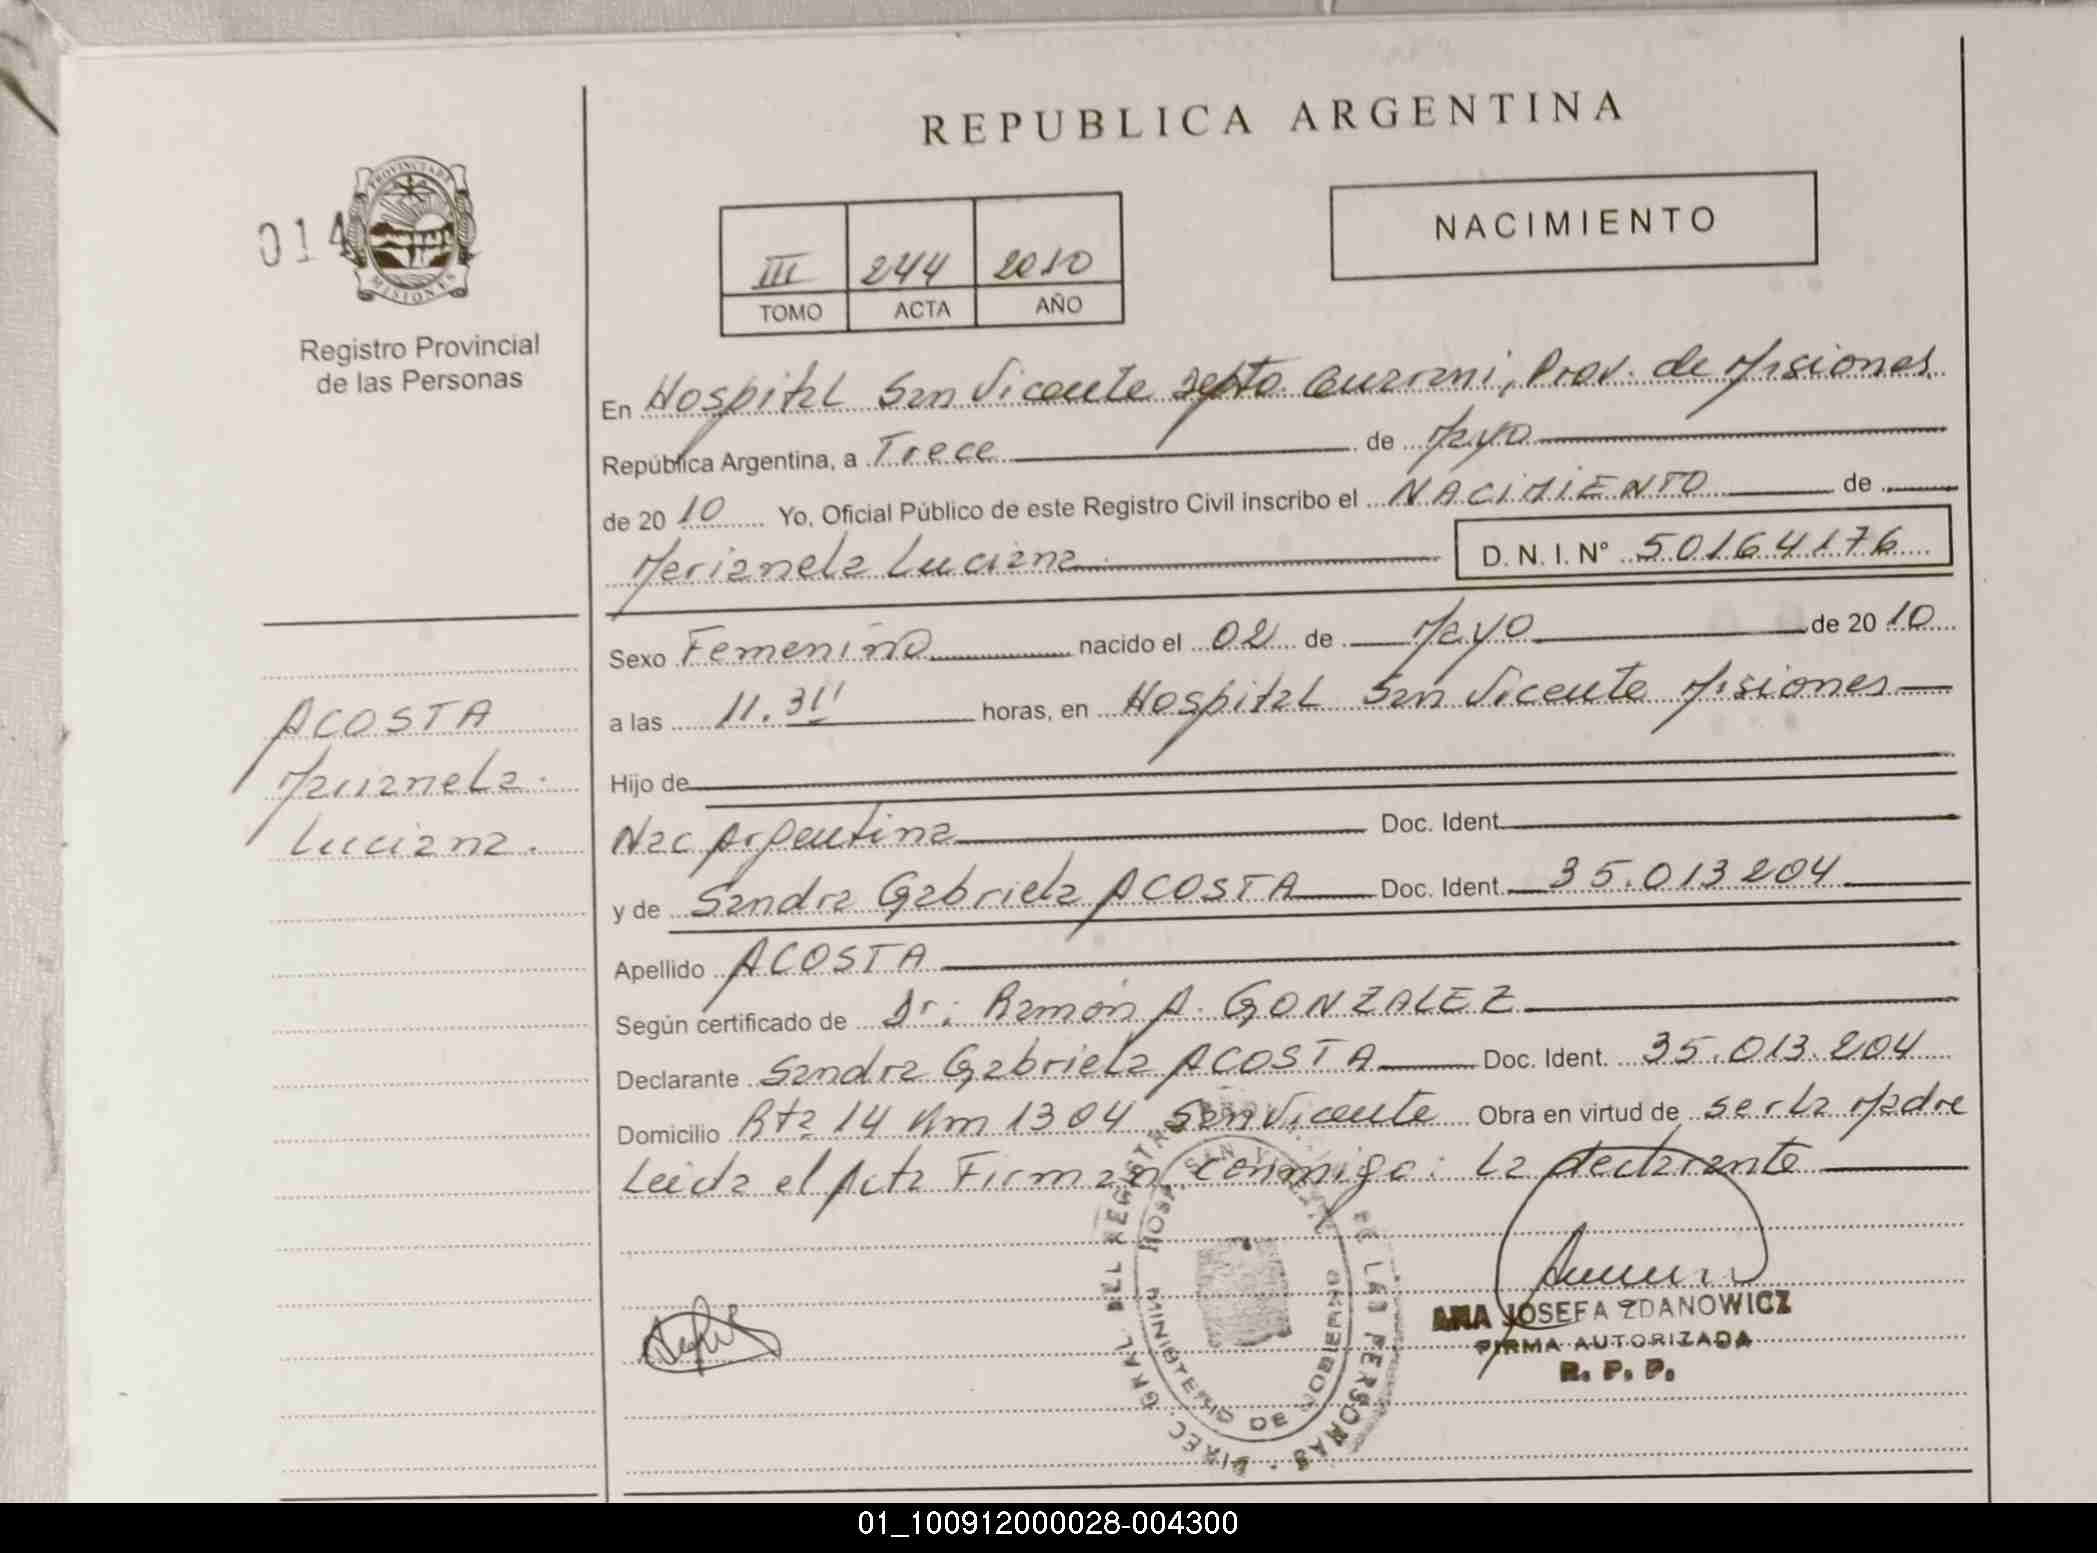 REPUBLICA ARGENTINA
NACIMIENTO
014
PROVINCIA DE
MISIONES
Registro Provincial
de las Personas
III 244 2010
TOMO ACTA AÑO
En Hospital San Vicente Depto Guarani, Prov. de Misiones
República Argentina, a Trece de Mayo
de 2010 Yo, Oficial Público de este Registro Civil inscribo el NACIMIENTO de
Marianela Luciana D. N. I. N° 50164176
Sexo Femenino nacido el 02 de Mayo de 2010
a las 11.31 horas, en Hospital San Vicente Misiones
Hijo de
Nac Argentina Doc. Ident.
y de Sandra Gabriela ACOSTA Doc. Ident. 35.013204
Apellido ACOSTA
Según certificado de Dr: Ramón A. GONZALEZ
Declarante Sandra Gabriela ACOSTA Doc. Ident. 35.013.204
Domicilio Rta 14 Km 1304 San Vicente Obra en virtud de ser la Madre
Leida el Acta Firman conmigo: La declarante
ACOSTA
Marianela
Luciana.
DIREC. GRAL. DEL REGISTRO DE LAS PERSONAS
HOSP. SAN VICENTE
MINISTERIO DE GOBIERNO
ANA JOSEFA ZDANOWICZ
FIRMA AUTORIZADA
R. P. P.
01_100912000028-004300